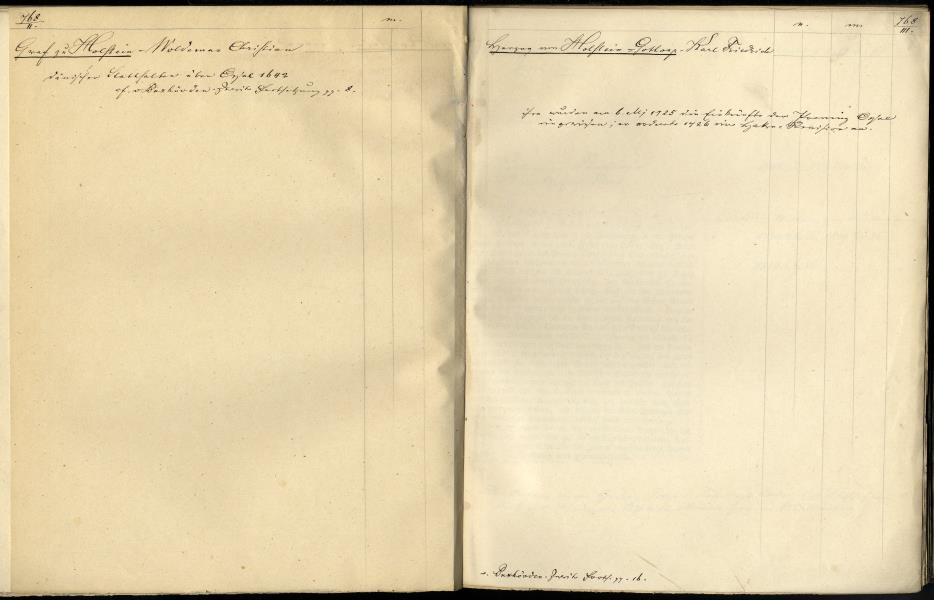 768
II.
m.
Graf zu Holstein - Woldemar Christian
dänischer Statthalter über Oesel 1642
cf. v. Buxhövden. Zweite Fortsetzung pg. 8.
n. m. 768
III.
Herzog von Holstein - Gottorp - Karl Friedrich
ihm wurden am 6. Mj 1725 die Einkünfte der Provinz Oesel
angewiesen; er ordnete 1726 eine Haken-Revision an.
v. Buxhövden. Zweite Forts. pg. 16.